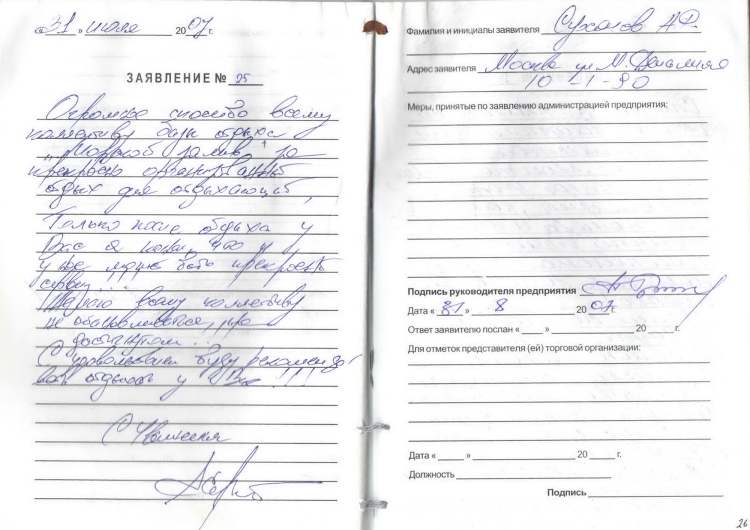 « 31 » июля 2007 г.
ЗАЯВЛЕНИЕ № 25
Огромное спасибо всему
коллективу базы отдыха
залив" за
прекрасно организованный
отдых для отдыхающих,
Только после отдыха у
Вас я понял, что и
у нас может быть прекрасный
сервис!...
Желаю всему коллективу
не останавливаться на
достигнутом...
С удовольствием буду рекомендо-
вать отдыхать у Вас!!!
С Уважением
Фамилия и инициалы заявителя Суханов А.Р.
Адрес заявителя Москва ул М.
10 -1-90
Меры, принятые по заявлению администрацией предприятия:
Подпись руководителя предприятия
Дата « 31 » 8 2007 г.
Ответ заявителю послан « » 20 г.
Для отметок представителя (ей) торговой организации:
Дата « » 20 г.
Должность
Подпись
26